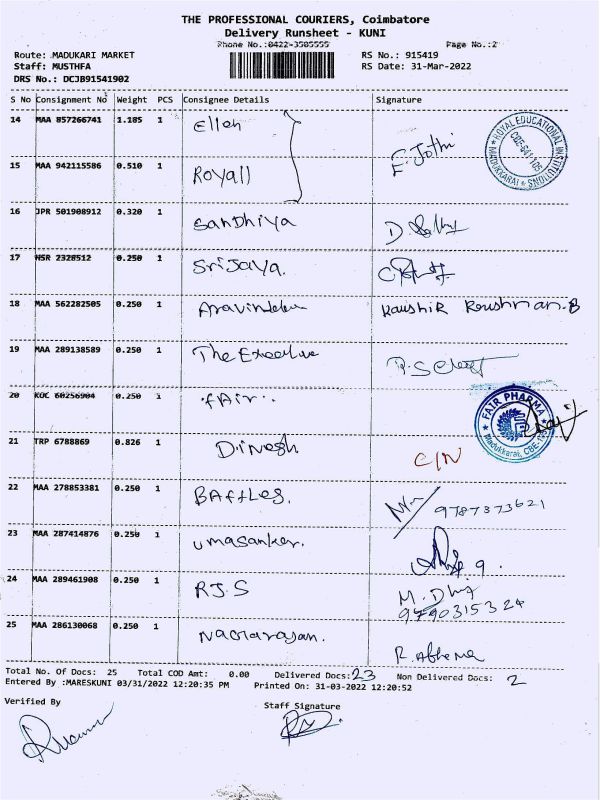 THE PROFESSIONAL COURIERS, Coimbatore
Delivery Runsheet - KUNI
Phone No.:0422-3505555 Page No.:2
Route: MADUKARI MARKET RS No.: 915419
Staff: MUSTHFA RS Date: 31-Mar-2022
DRS No.: DCJB91541902
S No Consignment No Weight PCS Consignee Details Signature
14 MAA 857266741 1.185 1 Ellen
E. Jothi
ROYAL EDUCATIONAL INSTITUTIONS
MADUKKARAI
CBE-641 105
15 MAA 942115586 0.510 1 Royall
16 JPR 501908912 0.320 1 Sandhiya D.
17 HSR 2328512 0.250 1 Srijaya.
18 MAA 562282505 0.250 1 Kaushik Roushman.B
19 MAA 289138589 0.250 1 The Executive R.S
20 KOC 60256904 0.250 1 fair..
FAIR PHARMA
Madukkarai, CBE-105
21 TRP 6788869 0.826 1 Dinesh C/N
22 MAA 278853381 0.250 1 Baffles. 9787373621
23 MAA 287414876 0.250 1 Umasanker.
24 MAA 289461908 0.250 1 R.J.S M.
9790315324
25 MAA 286130068 0.250 1 Nagarajan. R.
Total No. Of Docs: 25 Total COD Amt: 0.00 Delivered Docs: 23 Non Delivered Docs: 2
Entered By :MARESKUNI 03/31/2022 12:20:35 PM Printed On: 31-03-2022 12:20:52
Verified By Staff Signature